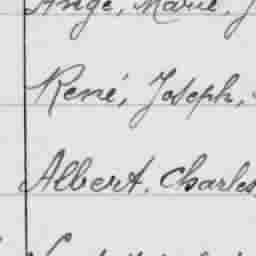 Ange, Marie, J
René, Joseph,
Albert, Charles,